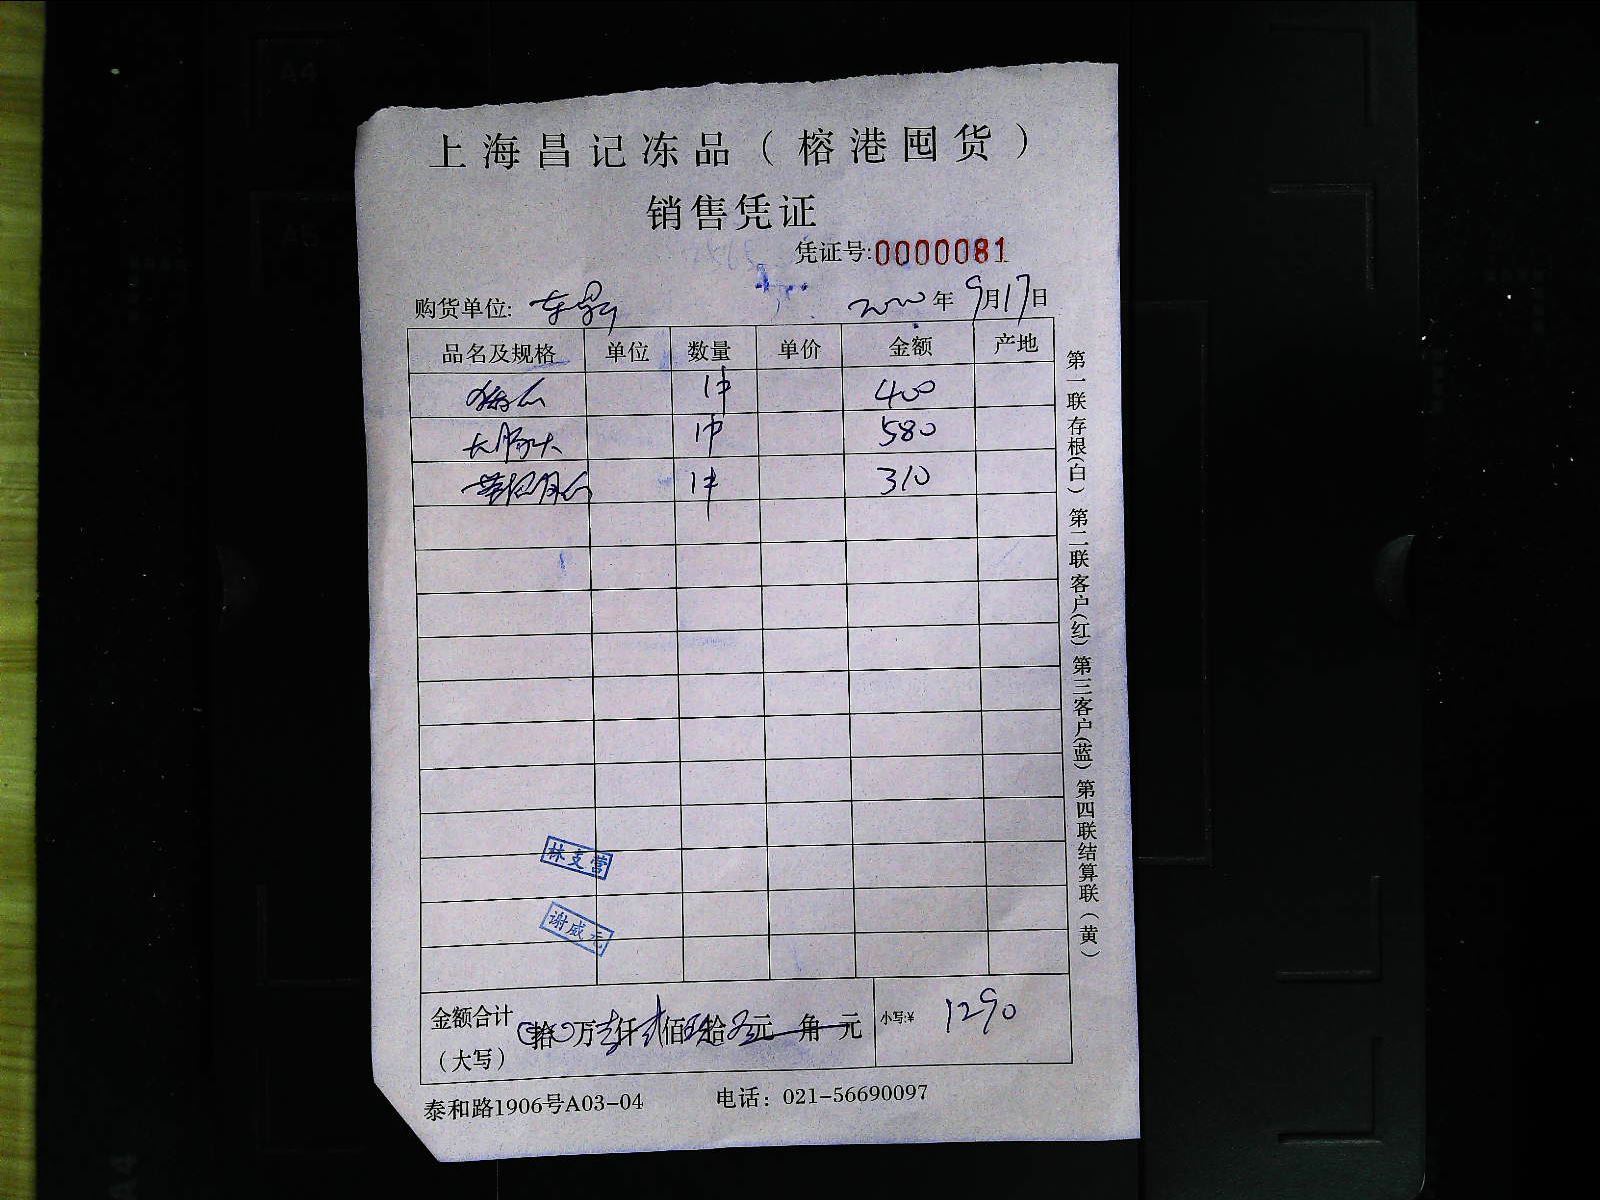 上海昌记冻品（榕港囤货）
销售凭证
凭证号:0000081
购货单位: 年9月17日
品名及规格 单位 数量 单价 金额 产地
1件 400
1件 580
1件 310
林支营
谢威元
金额合计 拾万壹仟贰佰玖拾零元角元 小写:¥ 1290
（大写）
泰和路1906号A03-04 电话：021-56690097
第一联存根(白) 第二联客户(红) 第三客户(蓝) 第四联结算联(黄)
A4
A5
A4